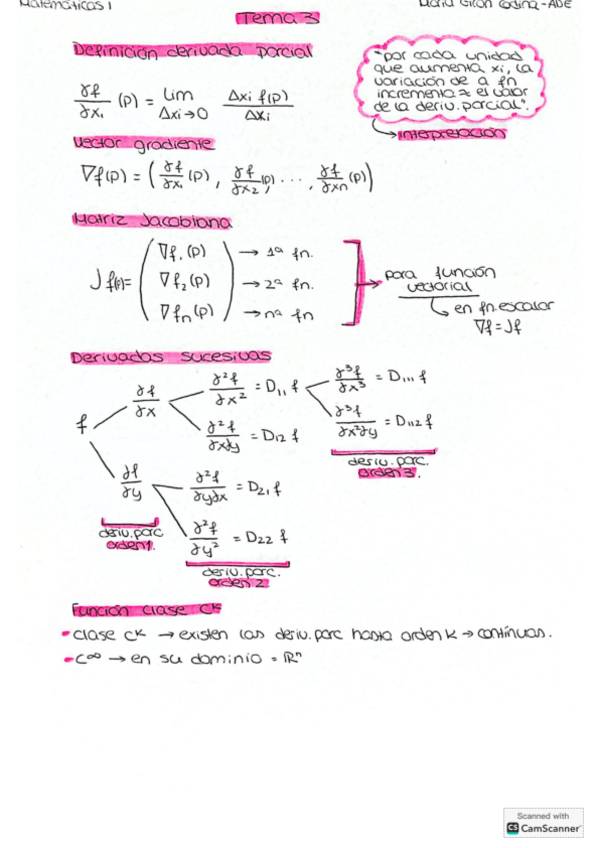 Matemáticas 1
María Girón Codina - ADE
Tema 3
Definición derivada parcial
∂f/∂x₁ (p) = Lim Δxi→0 Δxi f(p)/Δxi
"por cada unidad
que aumenta xi, la
variación de a fn
incrementa ≈ el valor
de la deriv. parcial".
→ interpretación
Vector gradiente
∇f(p) = (∂f/∂x₁ (p), ∂f/∂x₂ (p), ..., ∂f/∂xn (p))
Matriz Jacobiana
J f(p) =
∇f₁(p) → 1ª fn.
∇f₂(p) → 2ª fn.
∇fn(p) → nª fn
para función
vectorial
en fn. escalar
∇f = Jf
Derivadas sucesivas
f
∂f/∂x
∂²f/∂x² = D₁₁ f
∂³f/∂x³ = D₁₁₁ f
∂²f/∂x∂y = D₁₂ f
∂³f/∂x²∂y = D₁₁₂ f
∂f/∂y
∂²f/∂y∂x = D₂₁ f
∂²f/∂y² = D₂₂ f
deriv. parc.
orden 3.
deriv. parc
orden 1.
deriv. parc.
orden 2
Función clase Cᵏ
- clase Cᵏ → existen las deriv. parc hasta orden k → contínuas.
- C∞ → en su dominio = ℝⁿ
Scanned with
CS CamScanner